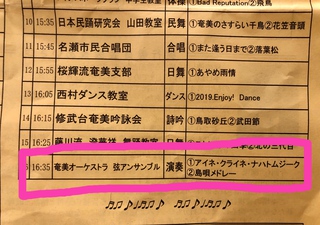 体操 ①Bad Reputation②飛鳥
10 15:35 日本民踊研究会 山田教室 民舞 ①奄美のさすらい千鳥②花笠音頭
11 15:45 名瀬市民合唱団 合唱 ①また逢う日まで②落葉松
12 15:55 桜輝流奄美支部 日舞 ①あやめ雨情
13 16:05 西村ダンス教室 ダンス ①2019.Enjoy! Dance
14 16:15 修武台奄美吟詠会 詩吟 ①鳥取砂丘②武田節
15 16:25 藤川流 舞踊教室
16:35 奄美オーケストラ 弦アンサンブル 演奏 ①アイネ・クライネ・ナハトムジーク
②島唄メドレー